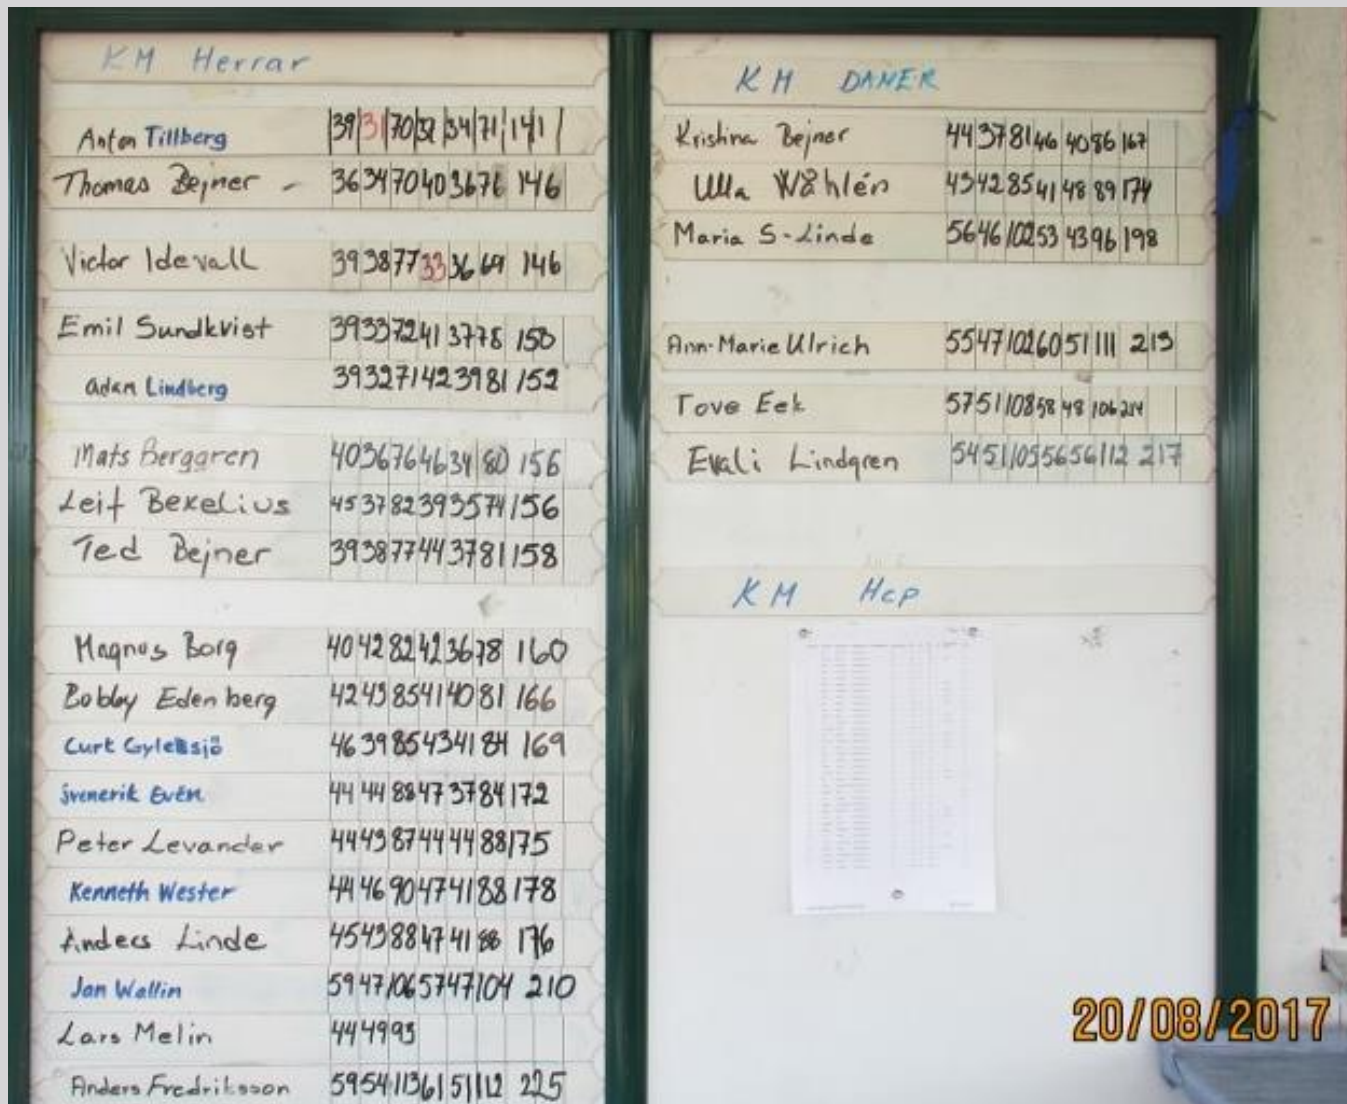 KM Herrar
Anton Tillberg 39 31 70 37 34 71 141
Thomas Bejner - 36 34 70 40 36 76 146
Victor Idevall 39 38 77 33 36 69 146
Emil Sundkvist 39 33 72 41 37 78 150
Adam Lindberg 39 32 71 42 39 81 152
Mats Berggren 40 36 76 46 34 80 156
Leif Bexelius 45 37 82 39 35 74 156
Ted Bejner 39 38 77 44 37 81 158
Magnus Borg 40 42 82 42 36 78 160
Bobby Edenberg 42 43 85 41 40 81 166
Curt Gyllensjö 46 39 85 43 41 84 169
Svenerik Evén 44 44 88 47 37 84 172
Peter Levander 44 43 87 44 44 88 175
Kenneth Wester 44 46 90 47 41 88 178
Anders Linde 45 43 88 47 41 88 176
Jan Wallin 59 47 106 57 47 104 210
Lars Melin 44 49 93
Anders Fredriksson 59 54 113 61 51 112 225
KM DAMER
Krishna Bejner 44 37 81 46 40 86 167
Ulla Wåhlén 43 42 85 41 48 89 174
Maria S-Linde 56 46 102 53 43 96 198
Ann-Marie Ulrich 55 47 102 60 51 111 213
Tove Eek 57 51 108 58 48 106 214
Evali Lindgren 54 51 105 56 56 112 217
KM Hcp
20/08/2017